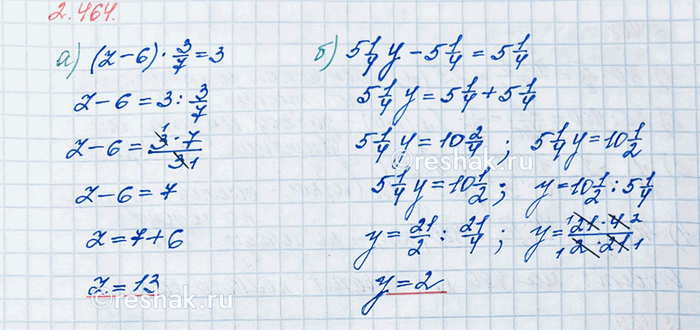 2.464.
а) (z-6)·3/7=3
z-6=3:3/7
z-6=3·7/3
z-6=7
z=7+6
z=13
б) 5 1/4 y-5 1/4=5 1/4
5 1/4 y=5 1/4+5 1/4
5 1/4 y=10 2/4; 5 1/4 y=10 1/2
5 1/4 y=10 1/2; y=10 1/2:5 1/4
y=21/2:21/4; y=21·4/2·21
y=2
©reshak.ru
©reshak.ru